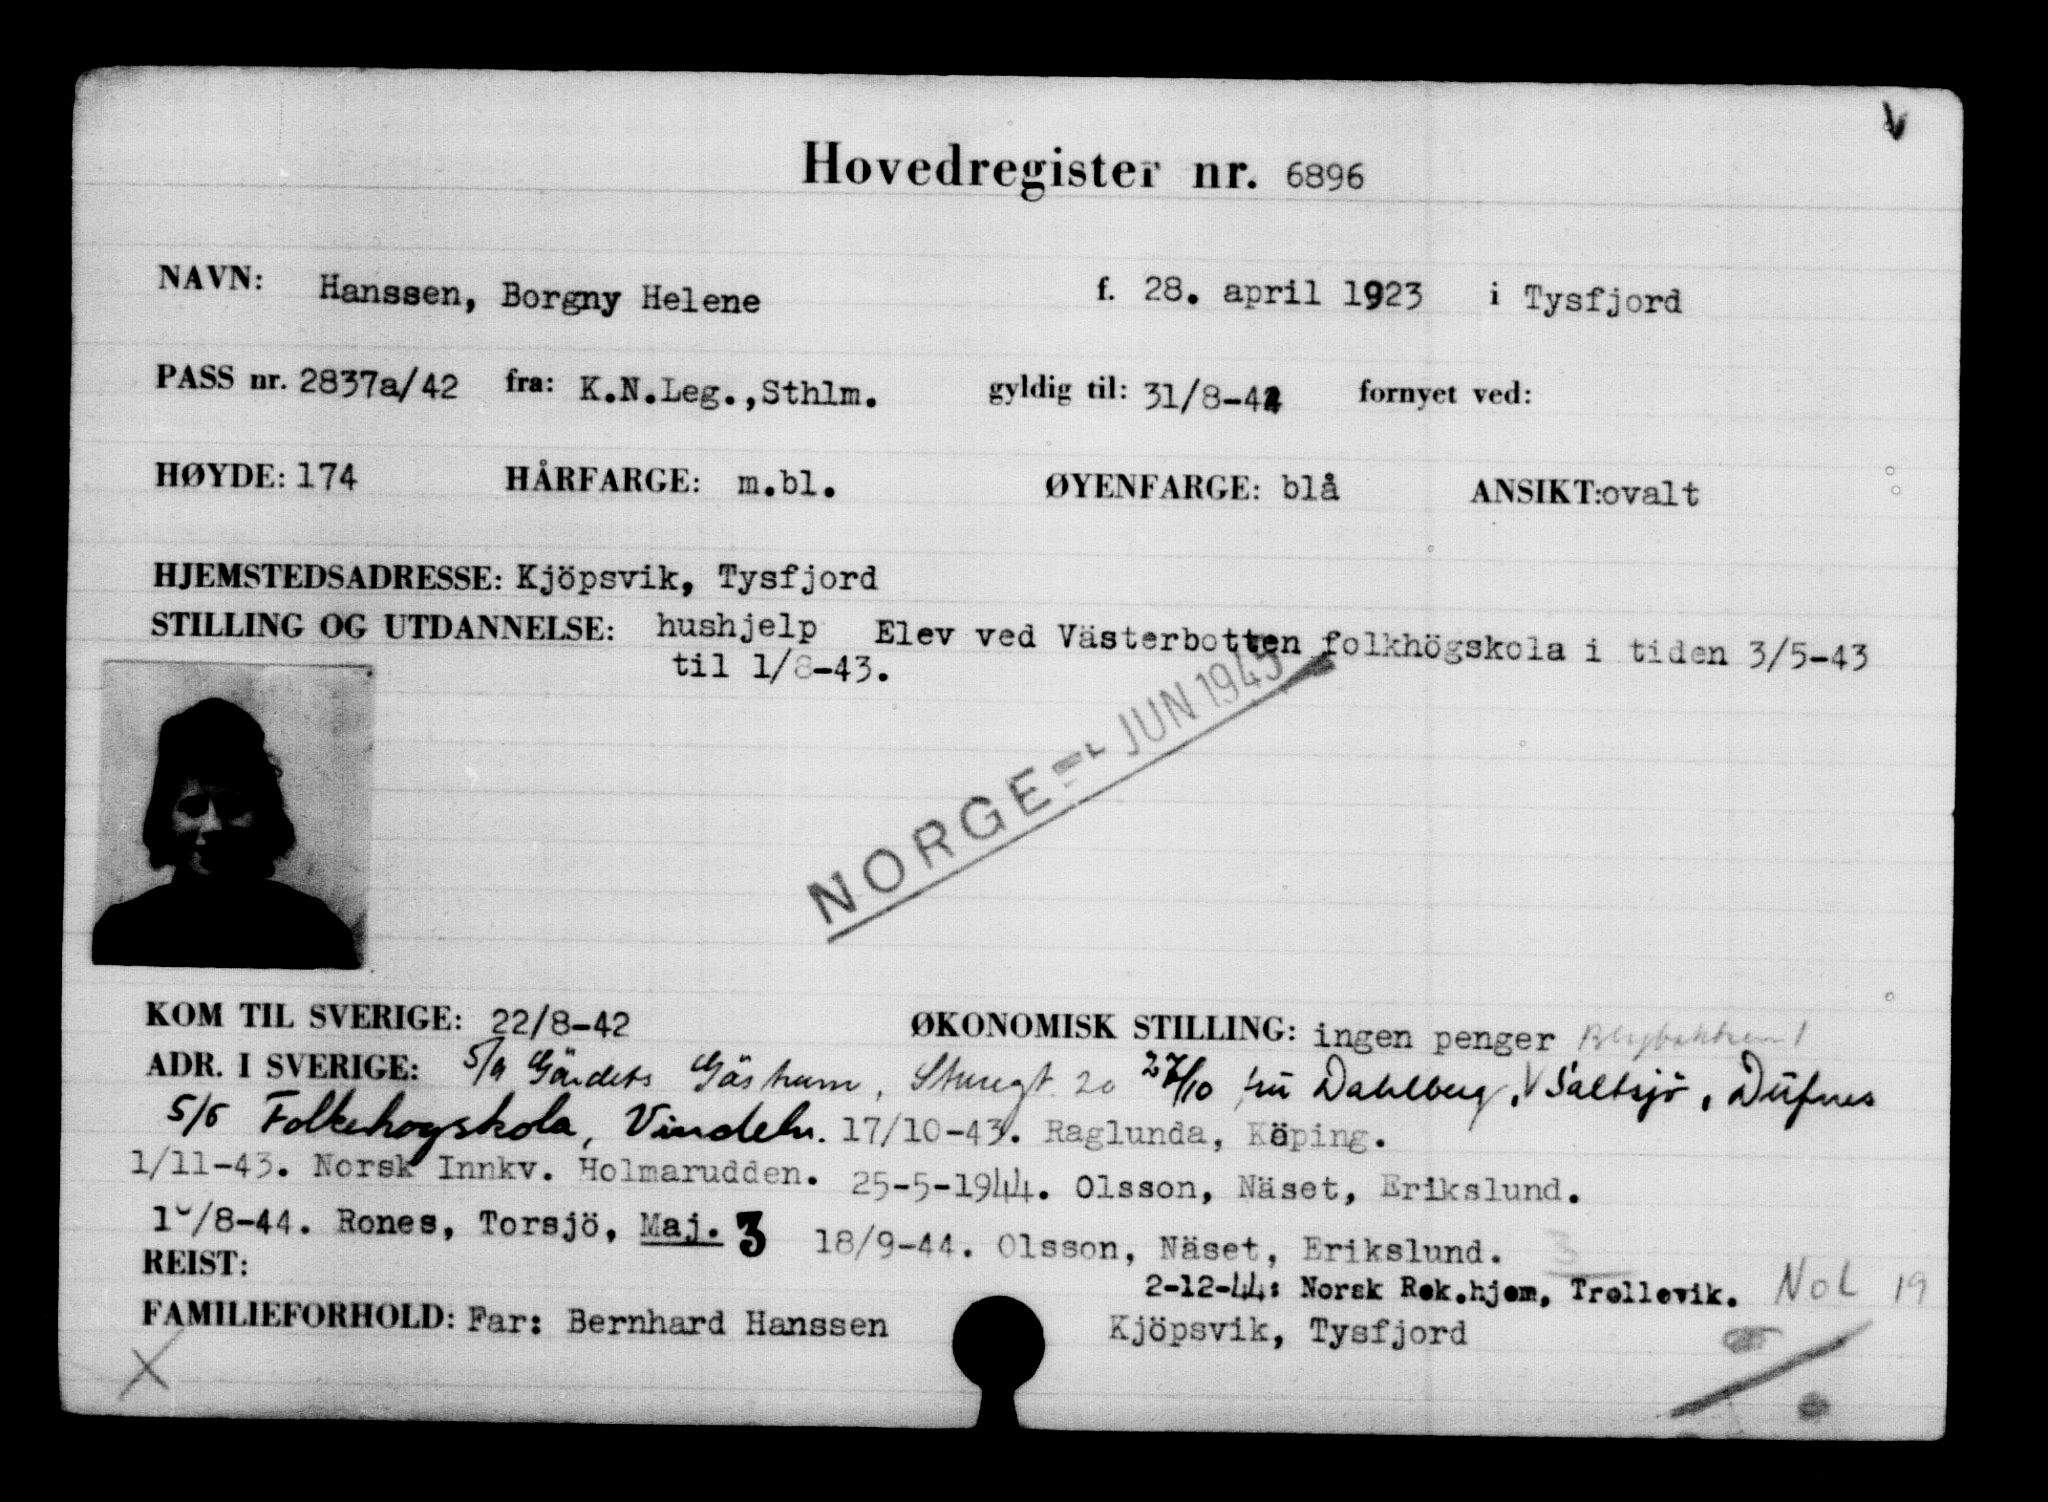 Hovedregister nr. 6896
NAVN: Hanssen, Borgny Helene f. 28. april 1923 i Tysfjord
PASS nr. 2837a/42 fra: K.N.Leg.,Sthlm. gyldig til: 31/8-44 fornyet ved:
HØYDE: 174 HÅRFARGE: m.bl. ØYENFARGE: blå ANSIKT: ovalt
HJEMSTEDSADRESSE: Kjöpsvik, Tysfjord
STILLING OG UTDANNELSE: hushjelp Elev ved Västerbotten folkhögskola i tiden 3/5-43
til 1/8-43.
NORGE JUN 1945
KOM TIL SVERIGE: 22/8-42 ØKONOMISK STILLING: ingen penger
ADR. I SVERIGE: 5/9 Gärdets 20 27/10 fru Dahlberg, Saltsjö, Düfnes
5/5 Folkehogskola, Vindeln. 17/10-43. Raglunda, Köping.
1/11-43. Norsk Innkv. Holmarudden. 25-5-1944. Olsson, Näset, Erikslund.
/8-44. Rones, Torsjö, Maj. 3 18/9-44. Olsson, Näset, Erikslund. 3
REIST: 2-12-44: Norsk Rek.hjem, Trollevik. NoL 19
FAMILIEFORHOLD: Far: Bernhard Hanssen Kjöpsvik, Tysfjord